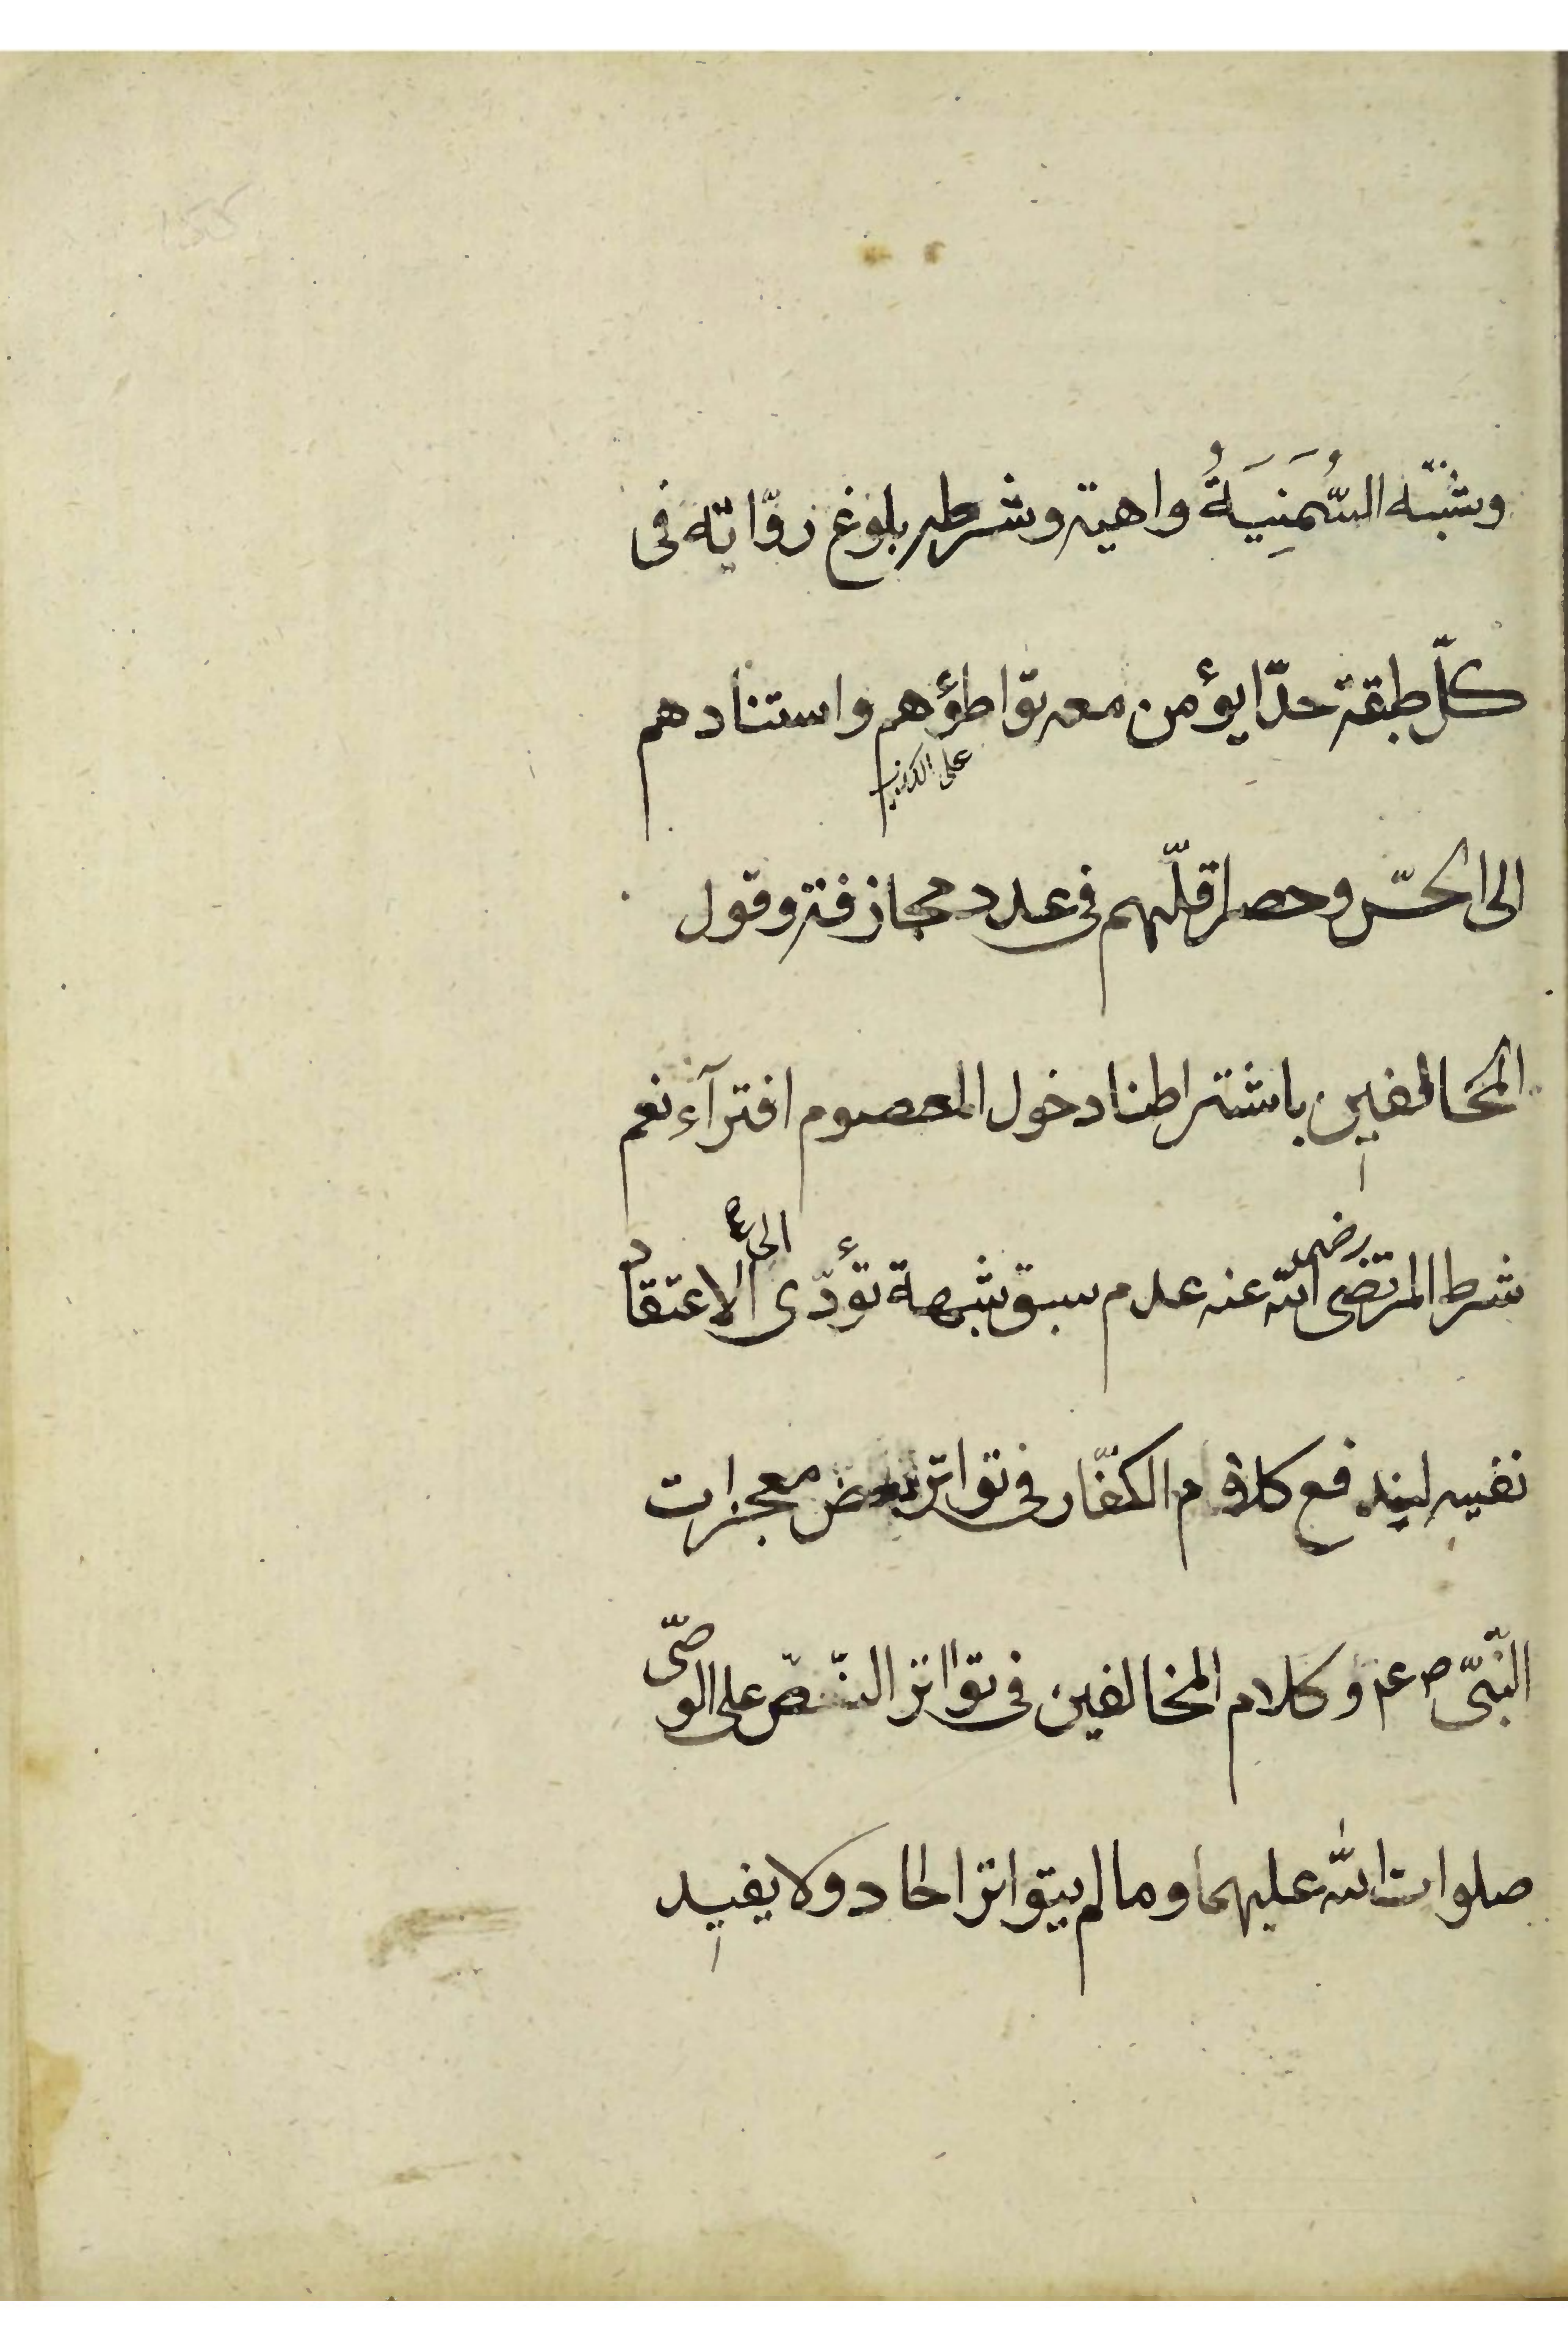 وشبّه السُّمَنِيَةُ واهية وشرطه بلوغ روّاته فى
كلّ طبقة حدّا يؤمن معه تواطؤهم واستنادهم
على الكذب
الى الحسّ وحصر اقلّهم فى عدد مجازفة وقول
المخالفين باشتراطنا دخول المعصوم افترآء نعم
شرط المرتضى رضى الله عنه عدم سبق شبهة تؤدّى الى الاعتقاد
نفيه ليندفع كلام الكفّار فى تواتر بعض معجزات
النّبىّ ص ع م وكلام المخالفين فى تواتر النّصّ على الوصىّ
صلوات الله عليهما وما لم يتواتر احاد ولا يفيد